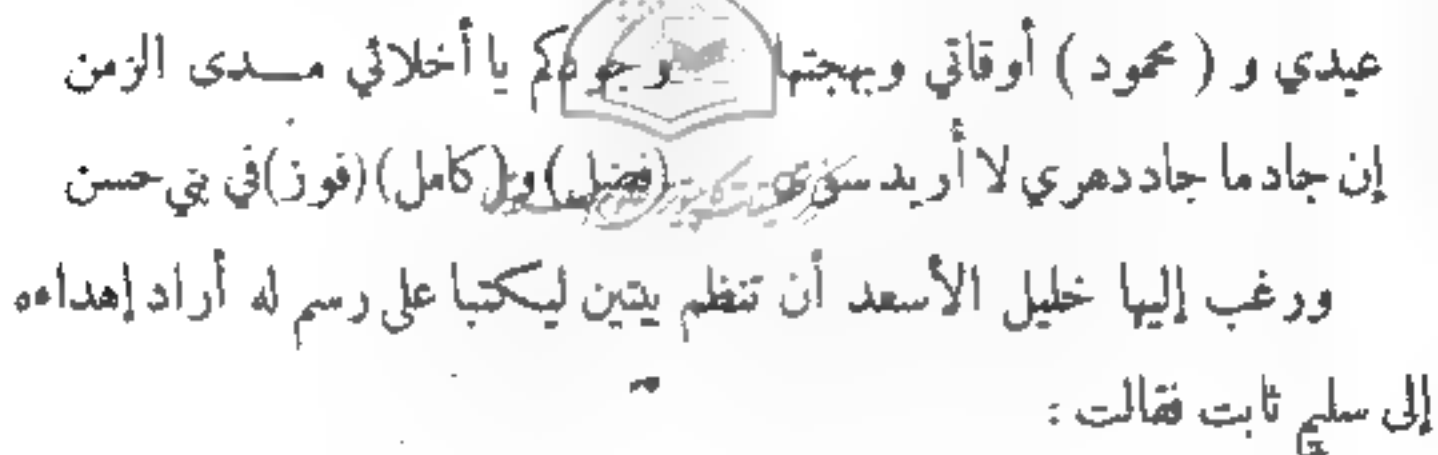 عيدي و ( محمود ) أوقاتي وبهجتها وجودكم يا أخلائي مدى الزمن
إن جاد ما جاد دهري لا أريد سوى (فضل) و(كامل) (فوز) في بني حسن
ورغب إليها خليل الأسعد أن تنظم بيتين ليكتبا على رسم له أراد إهداءه
إلى سليم ثابت فقالت :